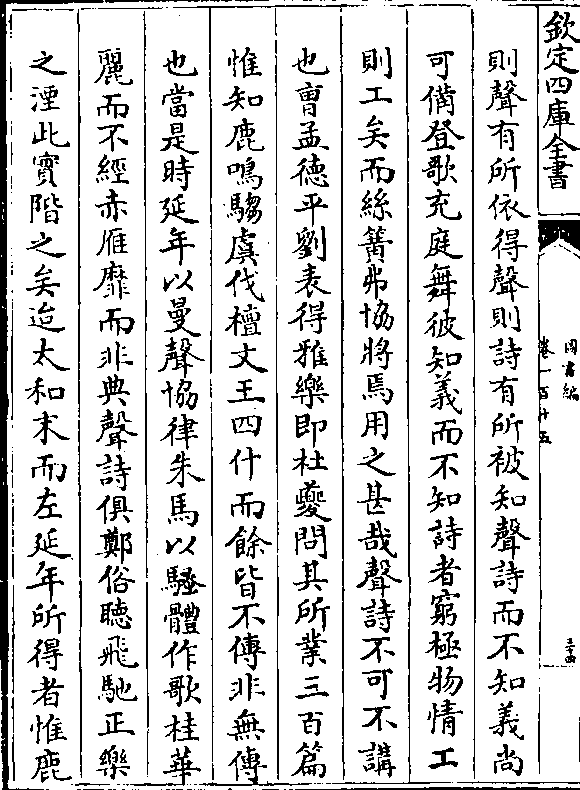 欽定四庫全書
圖書編
卷一百十五
三十四
則聲有所依得聲則詩有所被知聲詩而不知義尚
可備登歌充庭舞彼知義而不知詩者窮極物情工
則工矣而絲簧弗協將焉用之甚哉聲詩不可不講
也曹孟德平劉表得雅樂即杜夔問其所業三百篇
惟知鹿鳴騶虞伐檀文王四什而餘皆不傳非無傳
也當是時延年以曼聲協律朱馬以騷體作歌桂華
麗而不經赤雁靡而非典聲詩俱鄭俗聽飛馳正樂
之湮此實階之矣迨太和末而左延年所得者惟鹿